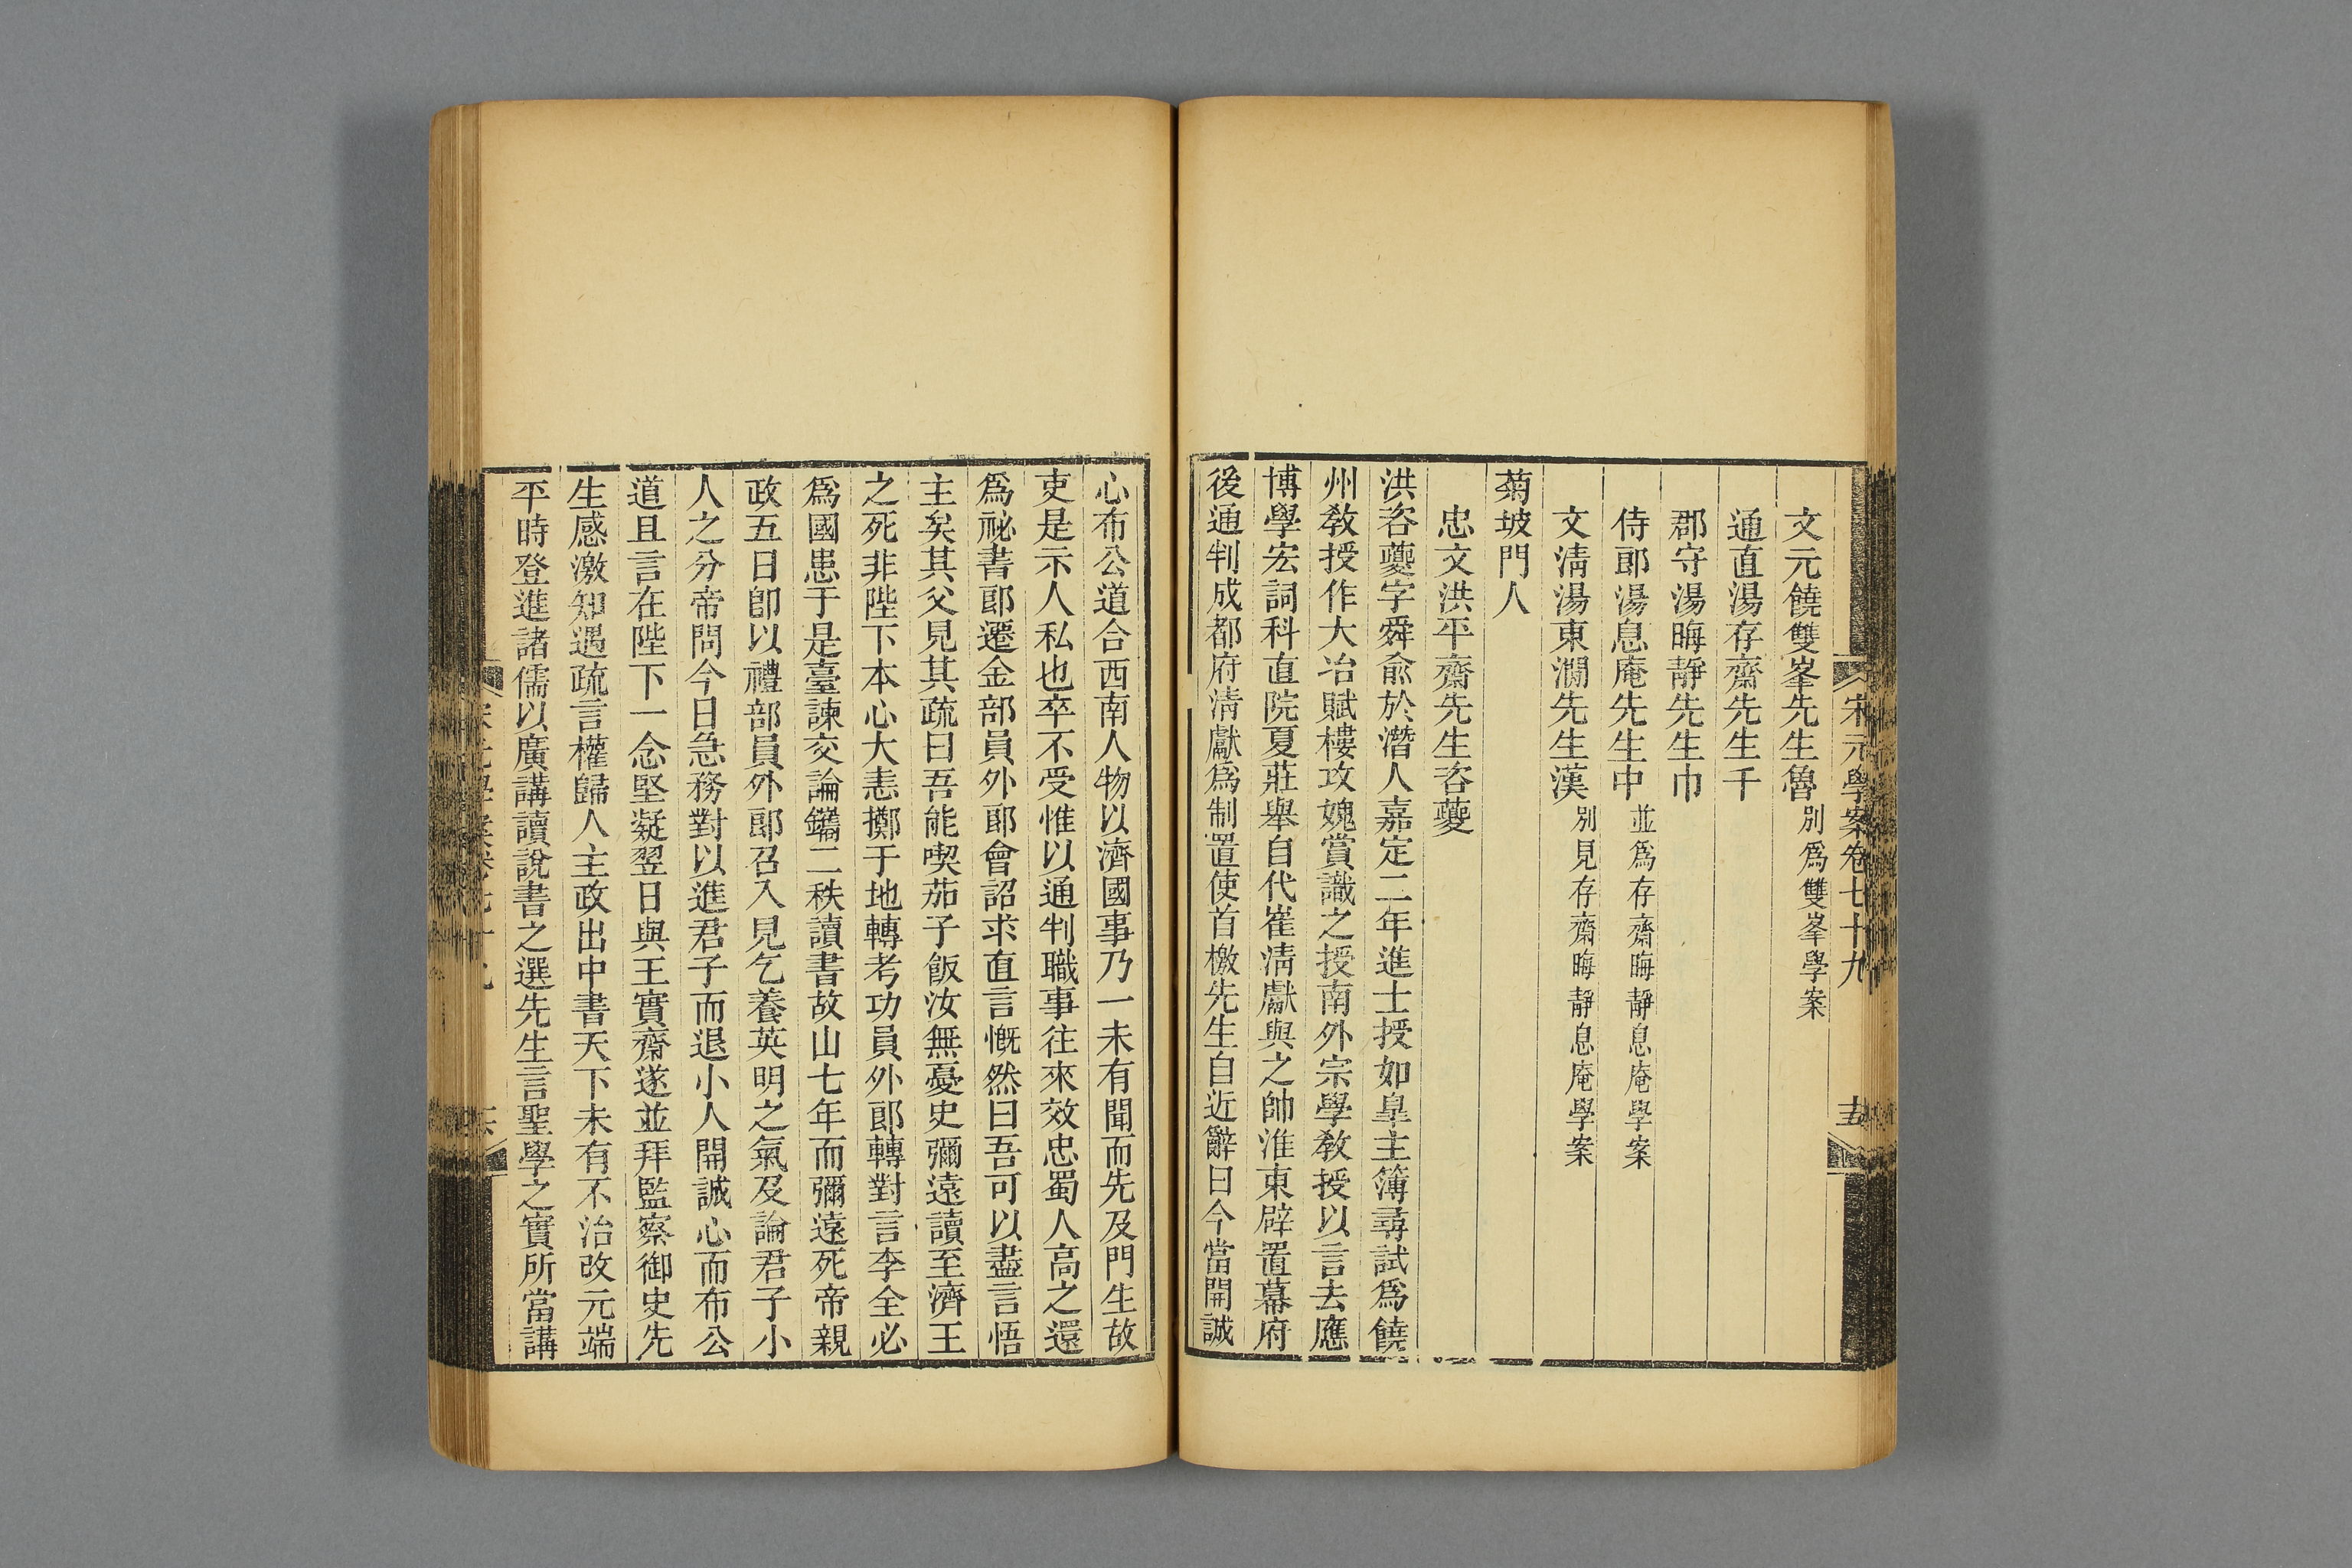 宋元學案卷七十九
十五
文元饒雙峯先生魯別爲雙峯學案
通直湯存齋先生千
郡守湯晦靜先生巾
侍郎湯息庵先生中並爲存齋晦靜息庵學案
文淸湯東澗先生漢別見存齋晦靜息庵學案
菊坡門人
忠文洪平齋先生咨夔
洪咨夔字舜兪於潛人嘉定二年進士授如臯主簿尋試爲饒
州敎授作大冶賦樓攻媿賞識之授南外宗學敎授以言去應
博學宏詞科直院夏莊舉自代崔淸獻與之帥淮東辟置幕府
後通判成都府淸獻爲制置使首檄先生自近辭曰今當開誠
心布公道合西南人物以濟國事乃一未有聞而先及門生故
吏是示人私也卒不受惟以通判職事往來效忠蜀人高之還
爲祕書郎遷金部員外郎會詔求直言慨然曰吾可以盡言悟
主矣其父見其疏曰吾能喫茄子飯汝無憂史彌遠讀至濟王
之死非陛下本心大恚擲于地轉考功員外郎轉對言李全必
爲國患于是臺諫交論鐫二秩讀書故山七年而彌遠死帝親
政五日卽以禮部員外郎召入見乞養英明之氣及論君子小
人之分帝問今日急務對以進君子而退小人開誠心而布公
道且言在陛下一念堅凝翌日與王實齋遂並拜監察御史先
生感激知遇疏言權歸人主政出中書天下未有不治改元端
平時登進諸儒以廣講讀說書之選先生言聖學之實所當講